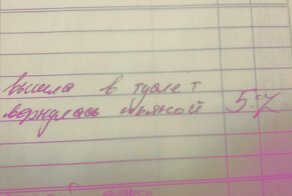 вышла в туалет
вернулась пьяной 5:7